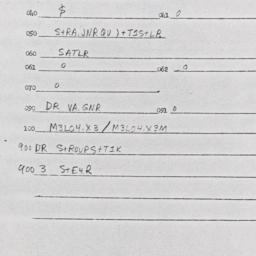 040 $ 041 0
050 S+RA.JNR QU)+T1S+LR
060 SATLR
061 0 062 0
070 0
090 DR VA.GNR 091 0
100 M3L04.X3/M3L04.X3M
900 DR S+ROUPS+T1K
900 3 S+E4R